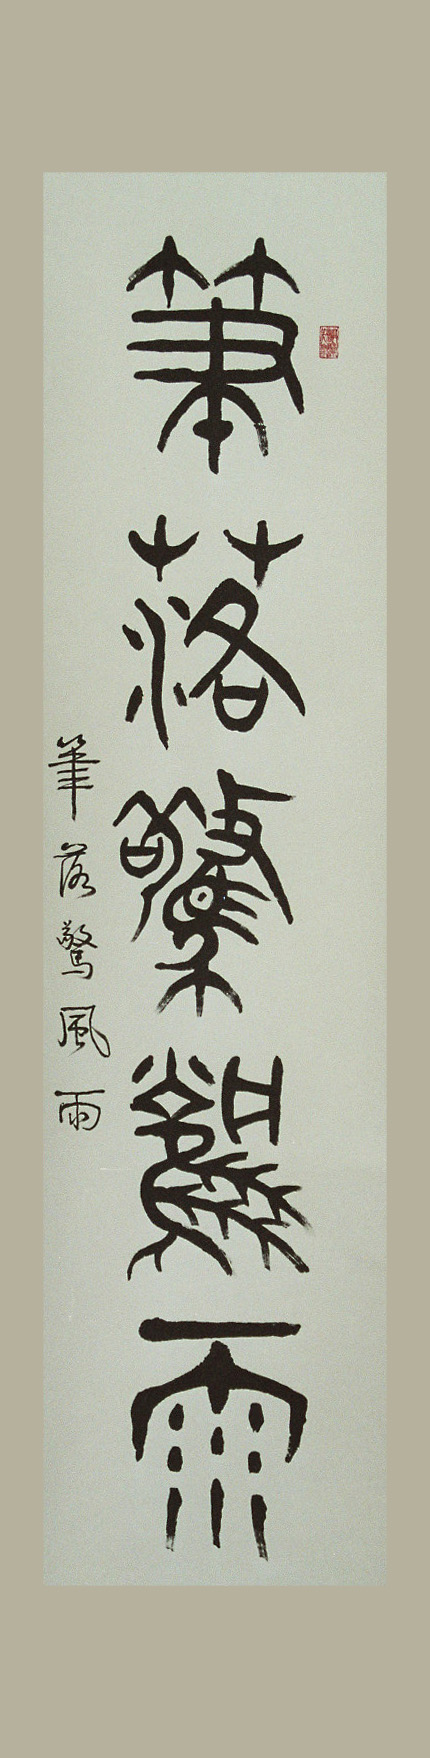 筆落驚風雨
筆落驚風雨